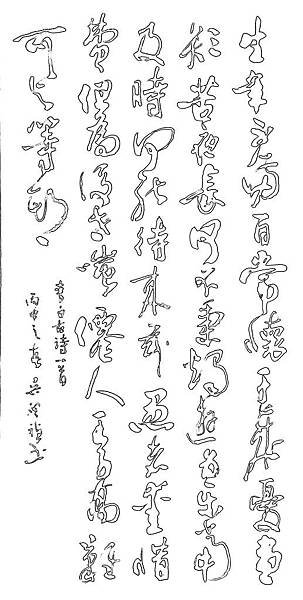 生年不滿百常懷千歲憂晝
短苦夜長何不秉燭遊為樂當
及時何能待來茲愚者愛惜
費但為後世嗤僊人王子喬難
可與等期
古詩一首
丙申之春吳書